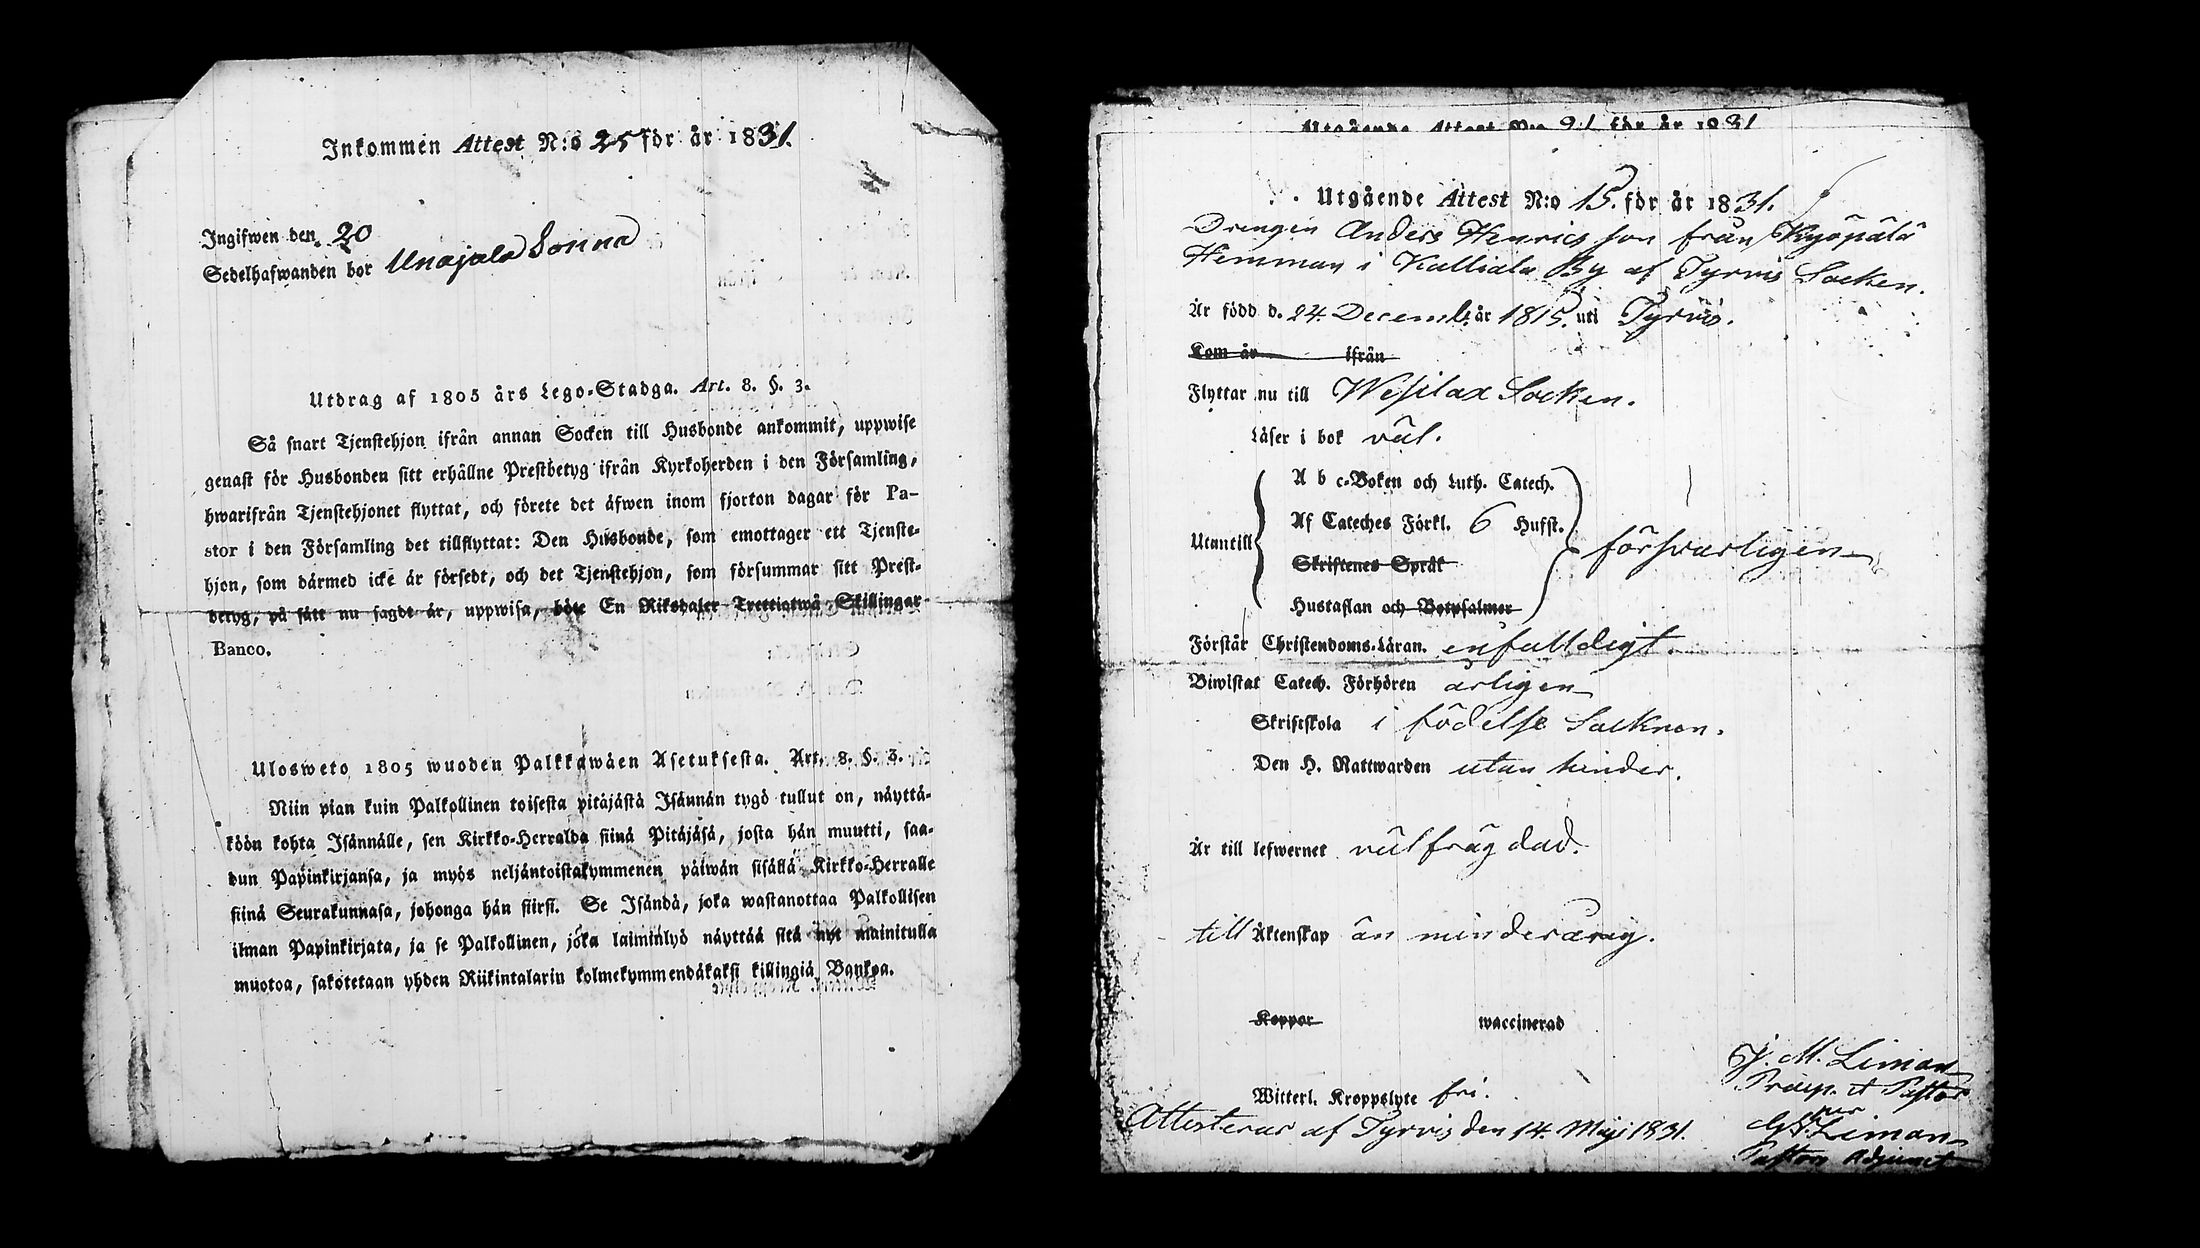 Inkommen Attest N:o 25 för år 1831.
Ingifwen den 20
Sedelhafwanden bor Unajala Sonna
Utdrag af 1805 års Lego-Stadga. Art. 8. §. 3.
Så snart Tjenstehjon ifrån annan Socken till Husbonde ankommit, uppwise
genast för Husbonden sitt erhållne Prestbetyg ifrån Kyrkoherden i den Församling,
hwarifrån Tjenstehjonet flyttat, och förete det äfwen inom fjorton dagar för Pa-
stor i den Församling det tillflyttat: Den Husbonde, som emottager ett Tjenste-
hjon, som därmed icke är försedt, och det Tjenstehjon, som försummar sitt Prest-
betyg, på sätt nu sagdt är, uppwisa, böte En Riksdaler Trettiotwå Skillingar
Banco.
Ulosweto 1805 wuoden Palkkawäen Asetuksesta. Art. 8. §. 3.
Niin pian kuin Palkollinen toisesta pitäjästä Isännän tygö tullut on, näyttä-
köön kohta Isännälle, sen Kirkko-Herralda siinä Pitäjäsä, josta hän muutti, saa-
dun Papinkirjansa, ja myös neljäntoistakymmenen päiwän sisällä Kirkko-Herralle
siinä Seurakunnasa, johonga hän siirsi. Se Isändä, joka wastanottaa Palkollisen
ilman Papinkirjata, ja se Palkollinen, joka laiminlyö näyttää sitä nyt mainitulla
muotoa, sakotetaan yhden Riikintalarin kolmekymmendäkaksi killingiä Bankoa.
Utgående Attest N:o 21 för år 1831
Utgående Attest N:o 15. för år 1831.
Drengen Anders Henricsson från Kyöpälä
Hemman i Kalliala By af Tyrvis Socken.
Är född d. 24. Decemb. år 1815. uti Tyrvis.
Kom år ifrån
Flyttar nu till Wesilax Socken.
Läser i bok väl.
A b c-Boken och Luth. Catech.
Af Cateches Förkl. 6 Hufst.
Utantill försvarligen
Skriftenes Språk
Hustaflan och Botpsalmer
Förstår Christendoms-Läran. enfalldigt.
Biwistat Catech. Förhören årligen
Skriftskola i födelse Socknen.
Den H. Nattwarden utan hinder.
Är till lefwernet välfrägdad.
till Äktenskap än minderårig.
Koppor waccinerad
Witterl. Kroppslyte fri.
Attesterar af Tyrvis den 14. Maji 1831.
J. M. Liman
Præp. et Pastor
per
G. Liman
Pastors Adjunct